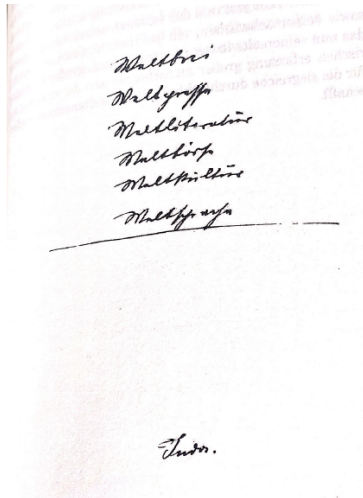 Weltbrei
Weltpresse
Weltliteratur
Weltbörse
Weltkultur
Weltsprache